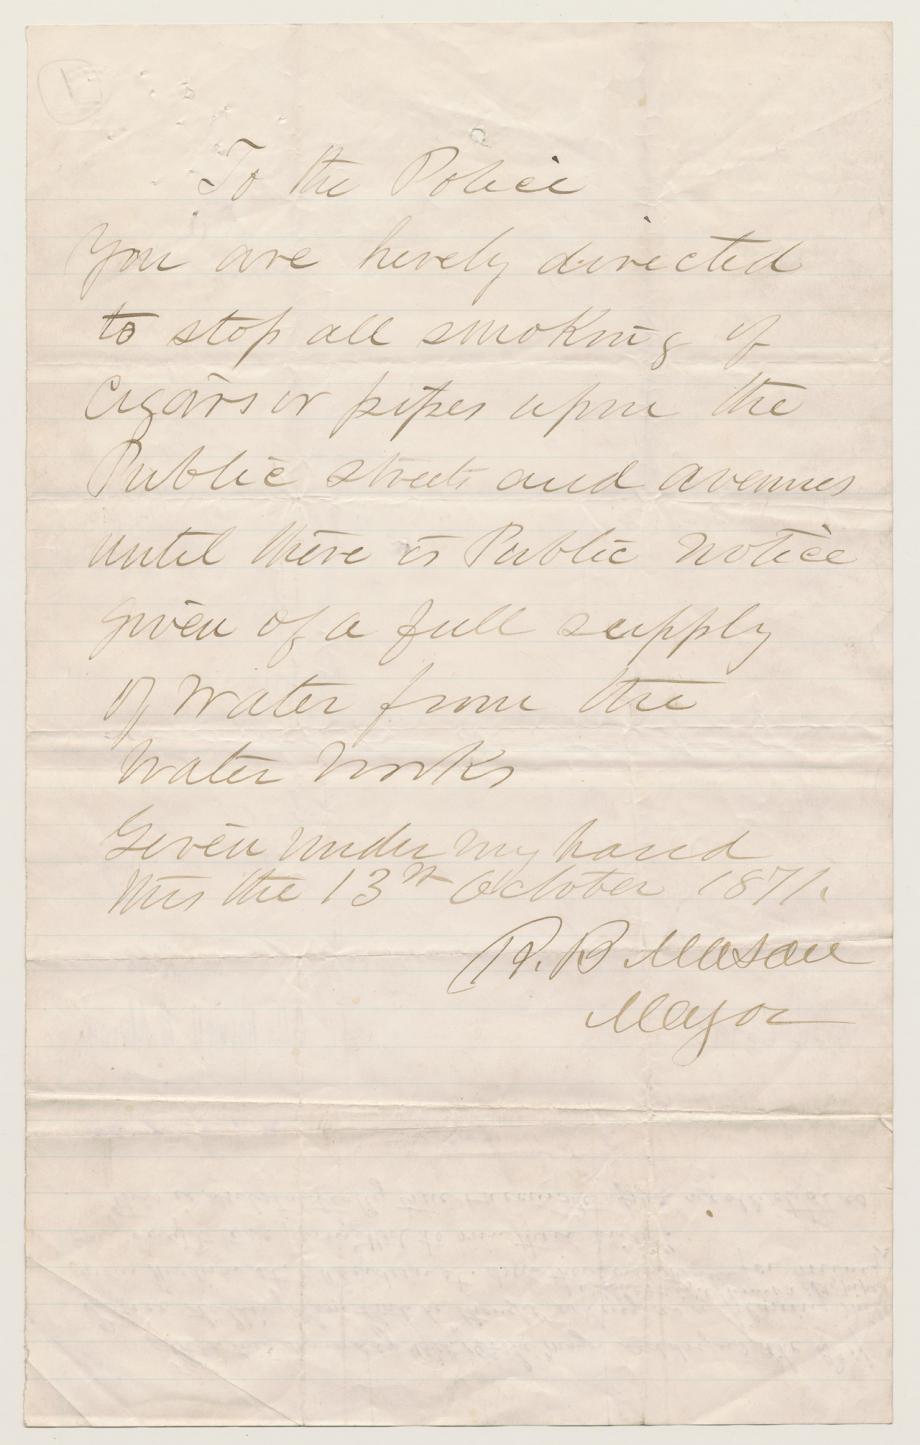 To the Police
You are hereby directed
to stop all smoking of
Cigars or pipes upon the
Public streets and avenues
until there is Public notice
given of a full supply
of water from the
water works
Given under my hand
this the 13th October 1871.
R. B Mason
Mayor